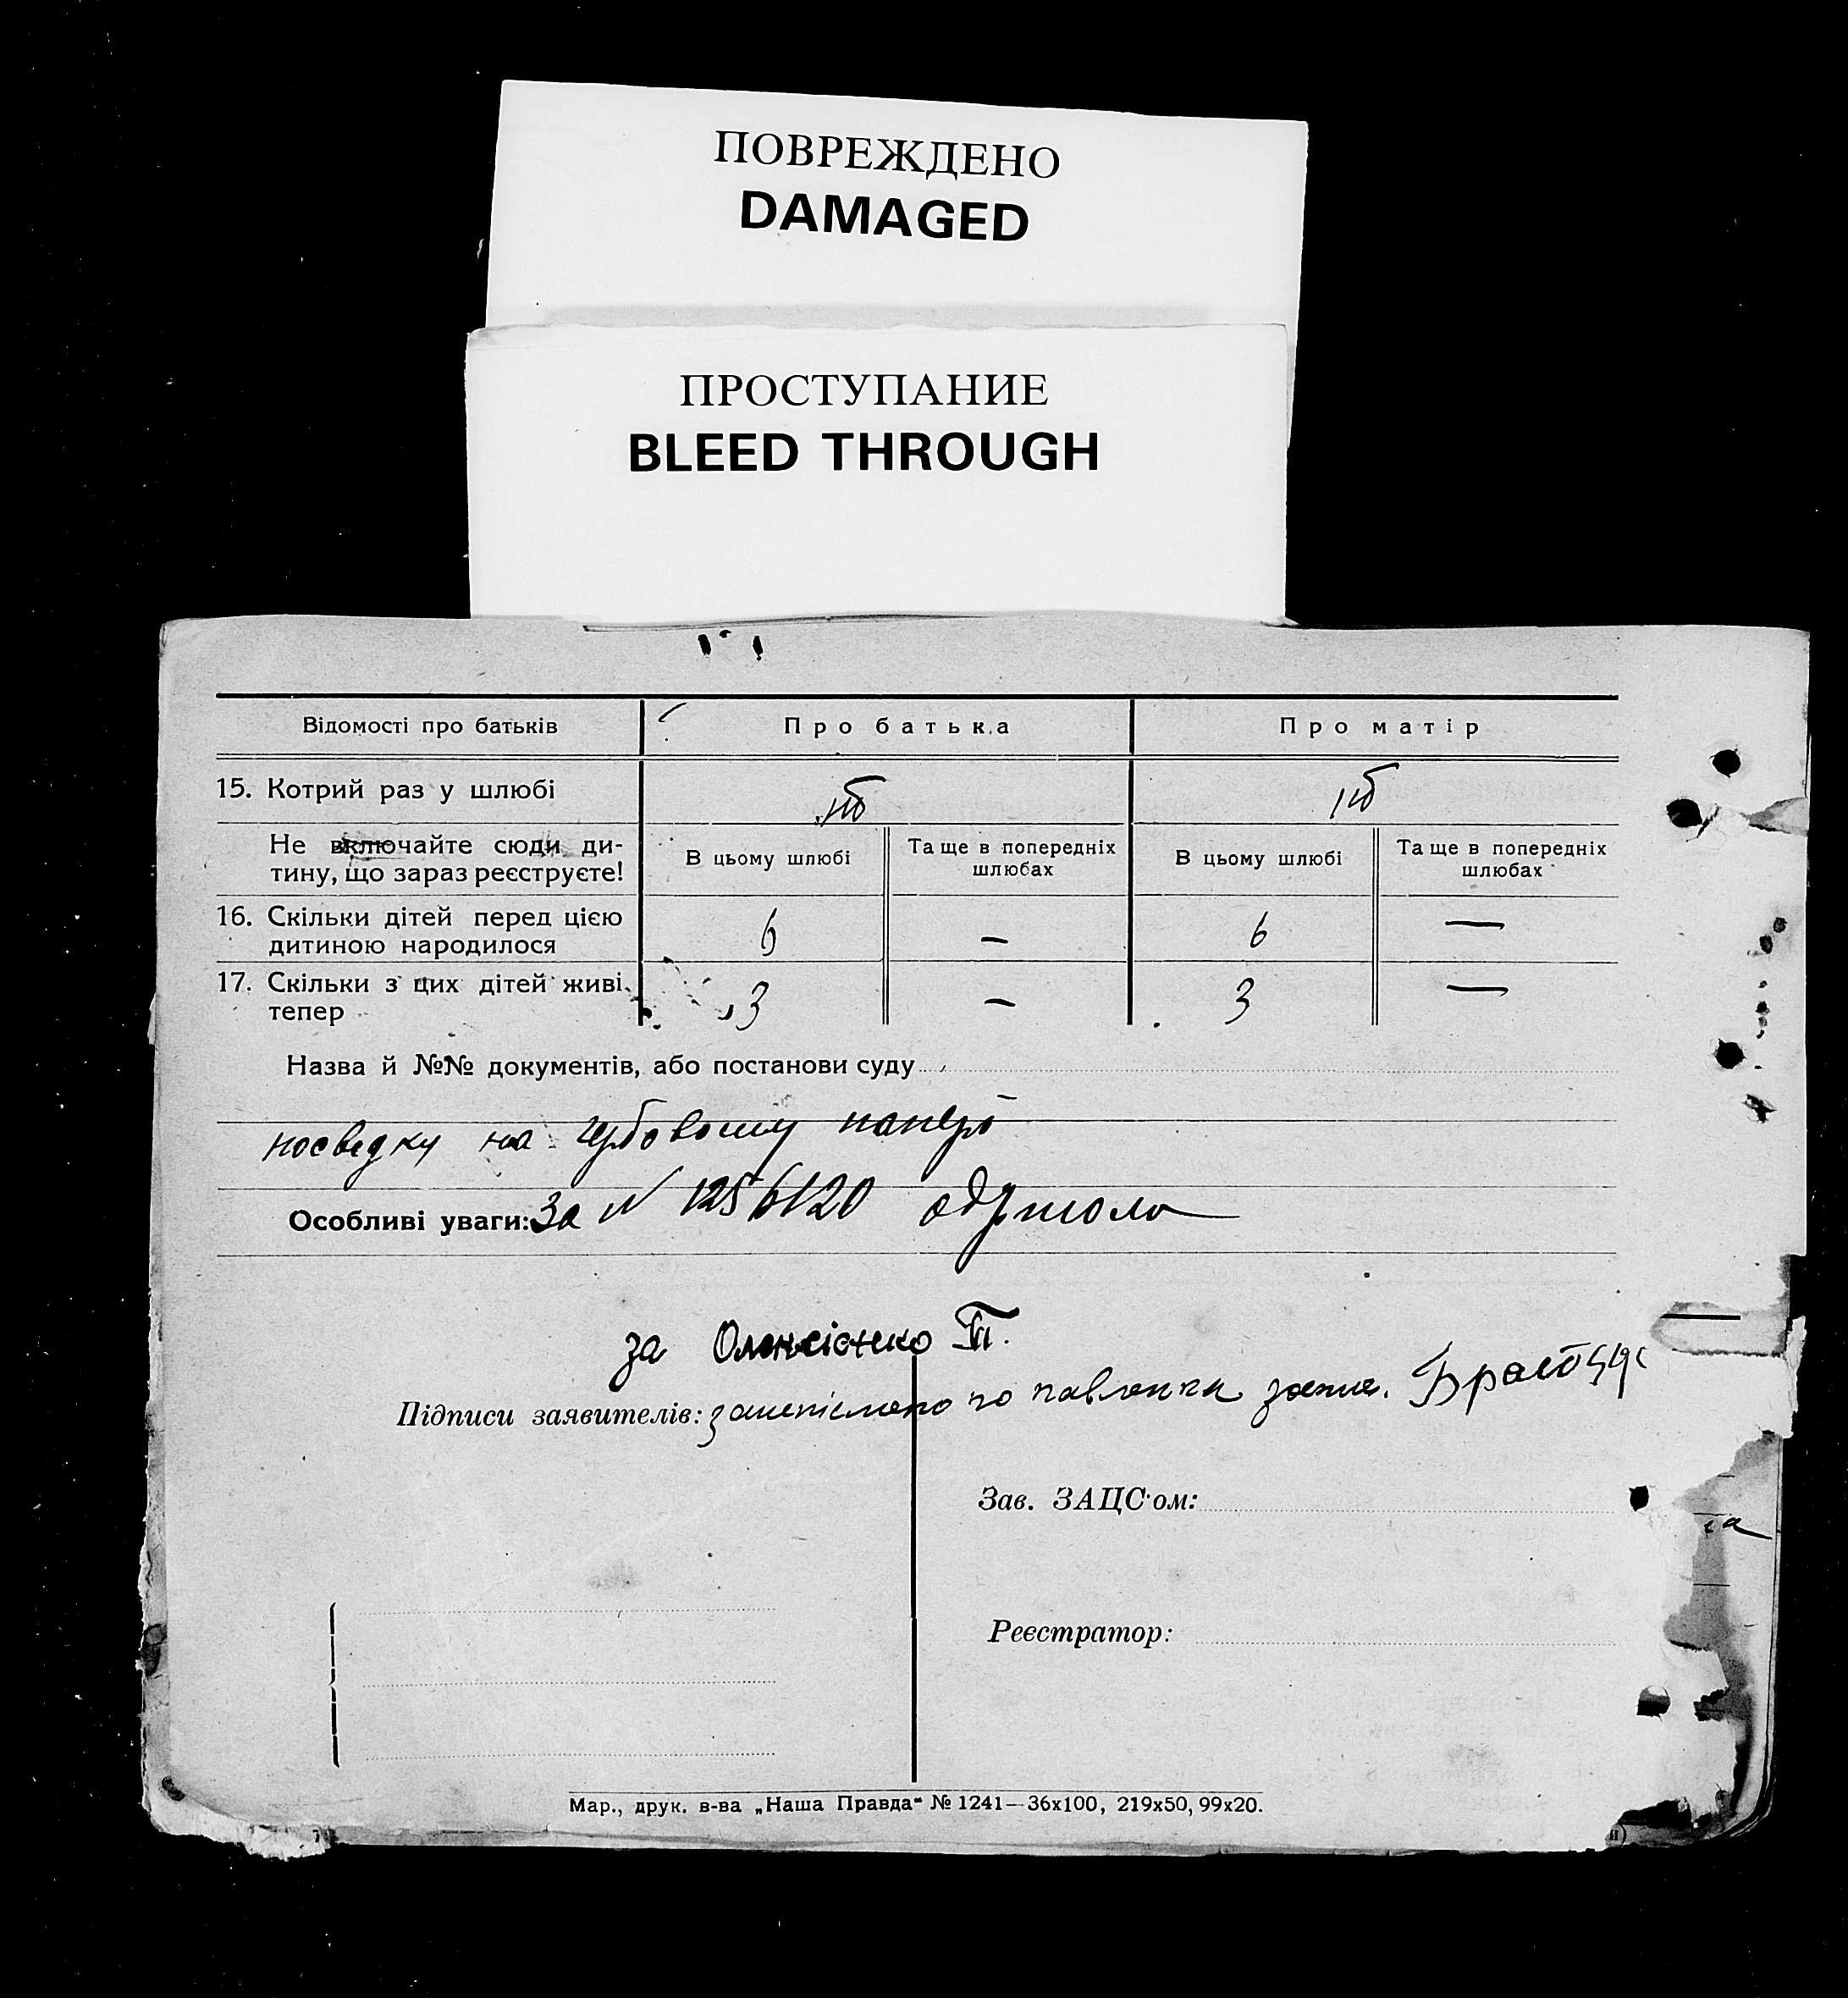 ПОВРЕЖДЕНО
DAMAGED
ПРОСТУПАНИЕ
BLEED THROUGH
Відомості про батьків Про батька Про матір
15. Котрий раз у шлюбі
Не включайте сюди ди-
тину, що зараз реєструєте!
В цьому шлюбі Та ще в попередніх шлюбах В цьому шлюбі Та ще в попередніх шлюбах
16. Скільки дітей перед цією
дитиною народилося 6 — 6 —
17. Скільки з цих дітей живі
тепер 3 — 3 —
Назва й №№ документів, або постанови суду
посвідку на гербовому папері
Особливі уваги: За N 1256120
за
Підписи заявителів:
Зав. ЗАЦС'ом:
Реєстратор:
Мар., друк. в-ва „Наша Правда“ № 1241—36х100, 219х50, 99х20.